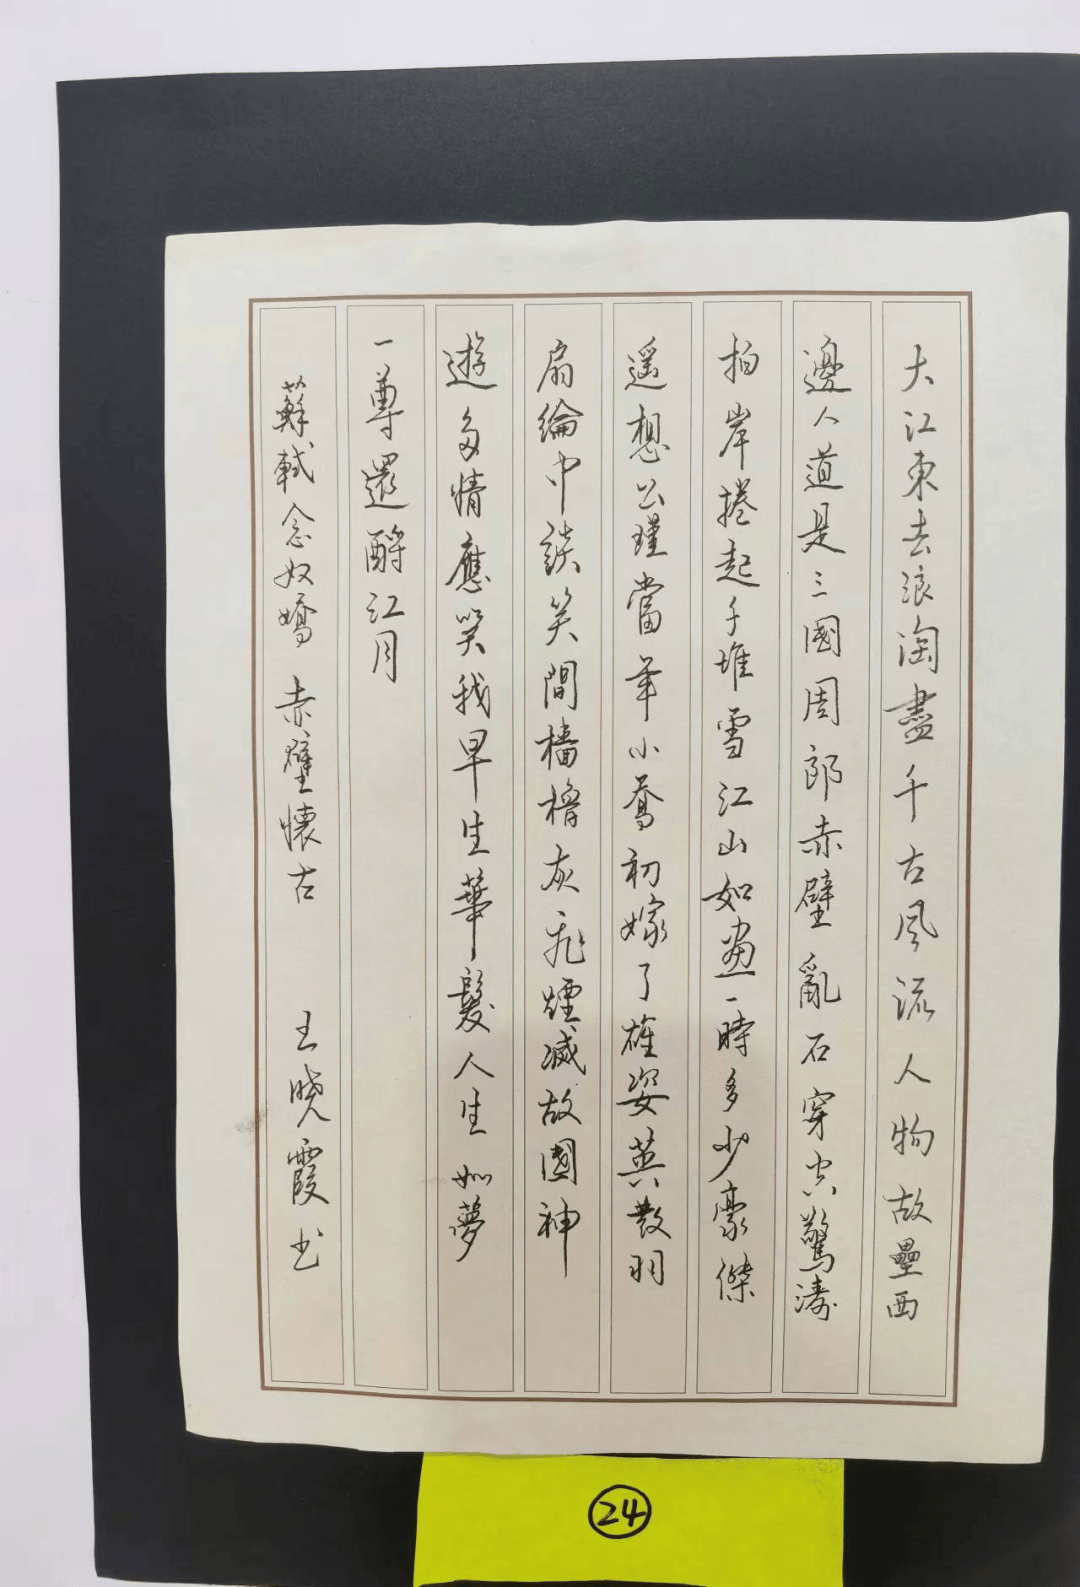 大江東去浪淘盡千古風流人物故壘西
邊人道是三國周郎赤壁亂石穿空驚濤
拍岸捲起千堆雪江山如畫一時多少豪傑
遥想公瑾當年小喬初嫁了雄姿英發羽
扇綸巾談笑間檣櫓灰飛煙滅故國神
遊多情應笑我早生華髮人生如夢
一尊還酹江月
蘇軾念奴嬌 赤壁懷古 王曉霞书
24